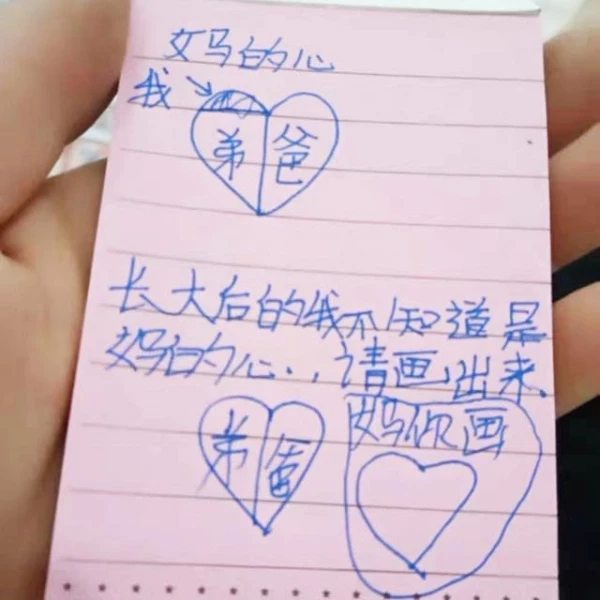 妈的心
我
弟 爸
长大后的我不知道是
妈的心..,请画出来
弟 爸
妈你画